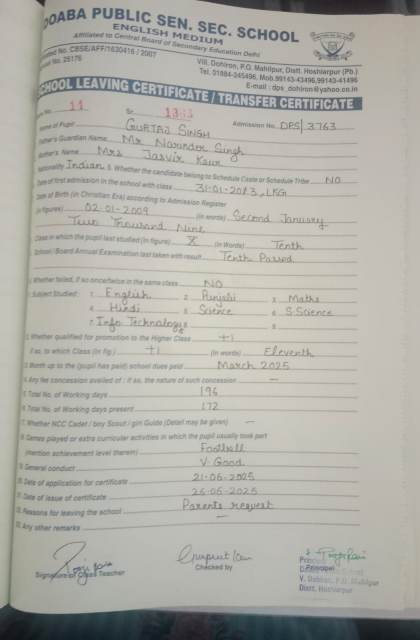 DOABA PUBLIC SEN. SEC. SCHOOL
ENGLISH MEDIUM
Affiliated to Central Board of Secondary Education Delhi
No. CBSE/AFF/1630416 / 2007
No. 25176
Vill. Dohlron, P.O. Mahilpur, Distt. Hoshiarpur (Pb.)
Tel. 01884-245496, Mob.99143-43496,99143-41496
E-mail : dps_dohlron@yahoo.co.in
SCHOOL LEAVING CERTIFICATE / TRANSFER CERTIFICATE
No. 11 Sr. Admission No. DPS/3763
Name of Pupil GURTAJ SINGH
Father's Guardian Name Mr Narinder Singh
Mother's Name Mrs Jasvir Kaur
Nationality Indian 5. Whether the candidate belong to Schedule Caste or Schedule Tribe NO
Date of first admission in the school with class 31-01-2013, LKG
Date of Birth (in Christian Era) according to Admission Register
(in figures) 02-01-2009 (in words) Second January
Two Thousand Nine
Class in which the pupil last studied (in figure) X (in Words) Tenth
School / Board Annual Examination last taken with result Tenth Passed
Whether failed, if so once/twice in the same class NO
Subject Studied: 1 English 2 Punjabi 3 Maths
4 Hindi 5 Science 6 S.Science
7 Info. Technology 8
Whether qualified for promotion to the Higher Class
if so, to which Class (in fig.) (in words) Eleventh
Month up to the (pupil has paid) school dues paid March 2025
Any fee concession availed of : if so, the nature of such concession —
Total No. of Working days 196
Total No. of Working days present 172
Whether NCC Cadet / boy Scout / gin Guide (Detail may be given) —
Games played or extra curricular activities in which the pupil usually took part
(mention achievement level therein) Football
General conduct V. Good
Date of application for certificate 21-06-2025
Date of issue of certificate 26-06-2025
Reasons for leaving the school Parents request
Any other remarks —
Signature of Class Teacher
Checked by
Principal
V. Dohlron, P.O. Mahilpur
Distt. Hoshiarpur